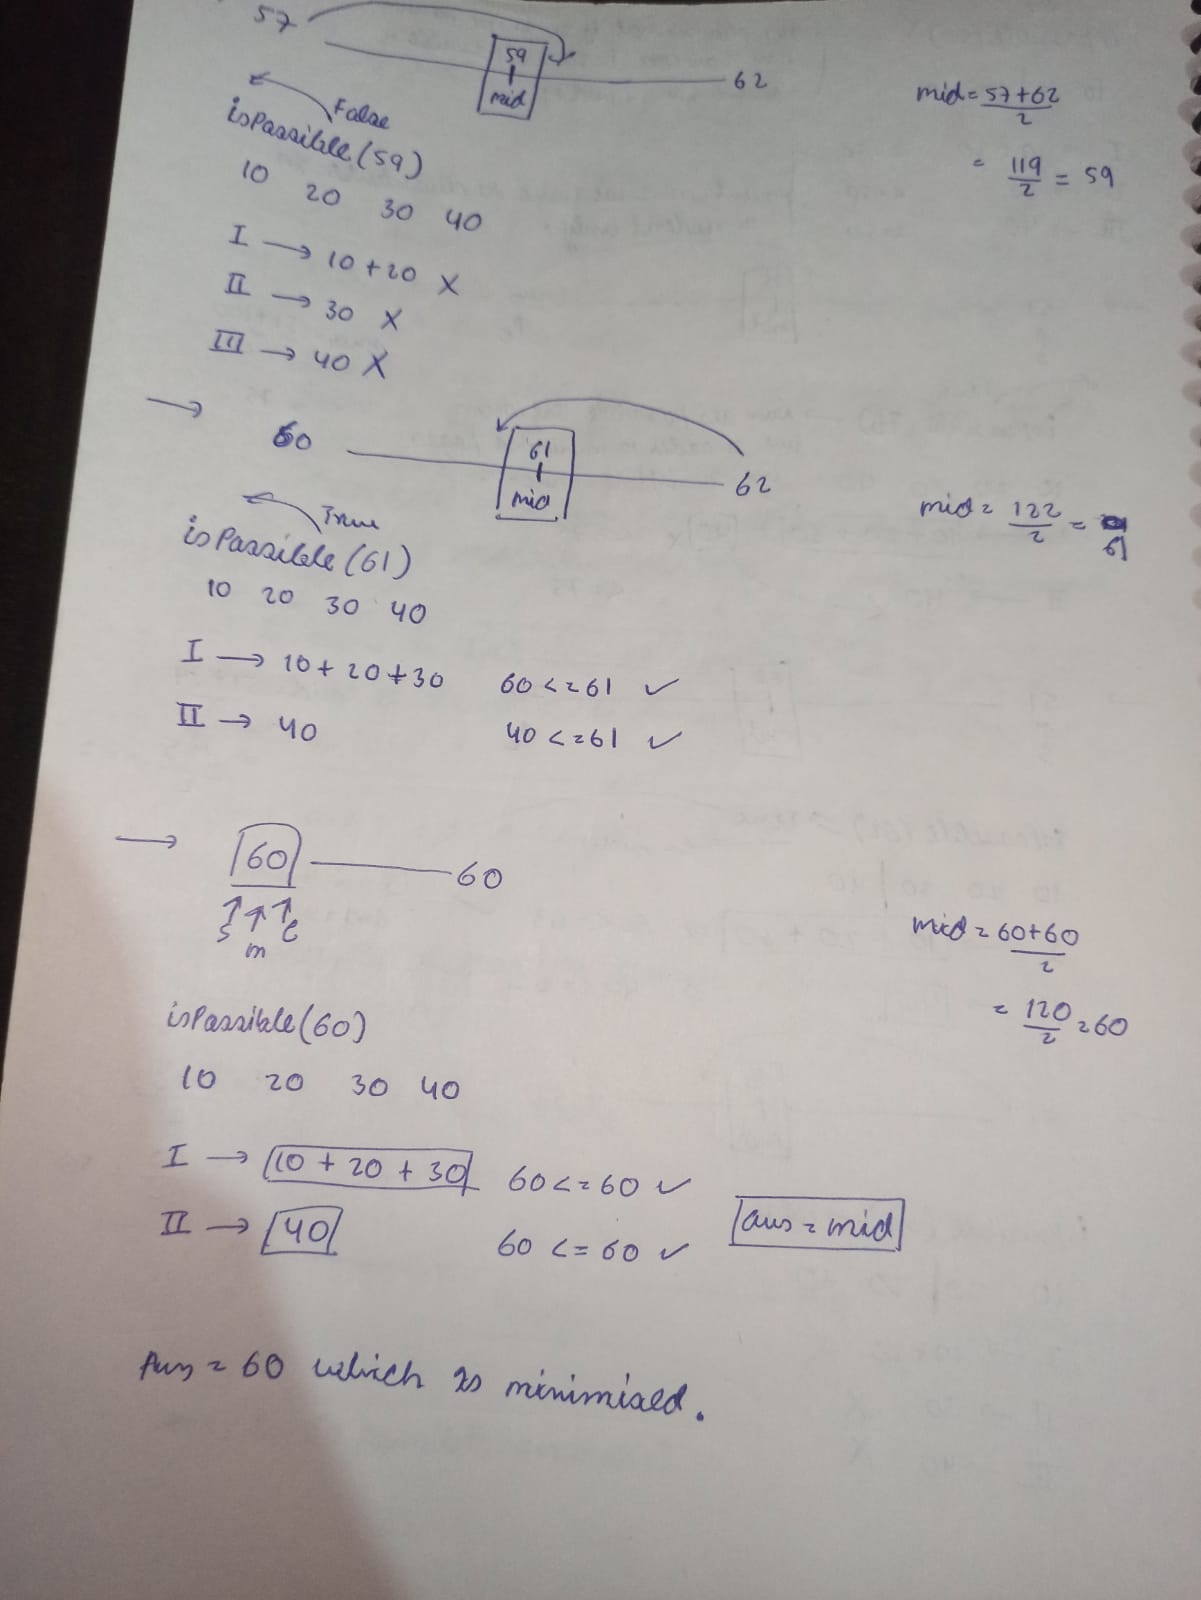 57
59
mid
62
mid = 57+62
2
= 119
2
= 59
False
isPossible(59)
10 20 30 40
I → 10 + 20 X
II → 30 X
III → 40 X
→ 60
61
mid
62
mid = 122
2
=
61
True
isPossible(61)
10 20 30 40
I → 10 + 20 + 30 60 <= 61 ✓
II → 40 40 <= 61 ✓
→ 60 60
s m e
mid = 60+60
2
= 120
2
= 60
isPossible(60)
10 20 30 40
I → 10 + 20 + 30 60 <= 60 ✓
II → 40 60 <= 60 ✓
ans = mid
Ans = 60 which is minimised.